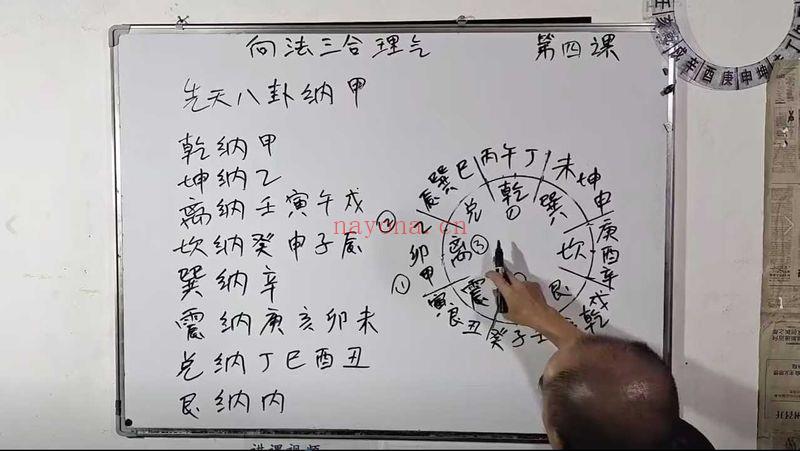 向法三合理气 第四课
先天八卦纳甲
乾纳甲
坤纳乙
离纳壬寅午戌
坎纳癸申子辰
巽纳辛
震纳庚亥卯未
兑纳丁巳酉丑
艮纳丙
辰巽巳
丙午丁
未坤申
庚酉辛
戌乾
壬子癸
丑艮寅
甲卯乙
乾
①
巽
坎
艮
震
离③
兑
②
①
辛酉庚申坤未丁
nayona.cn